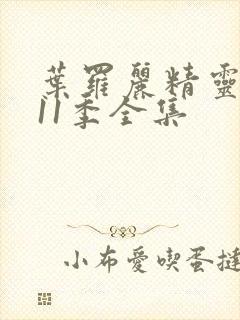 葉羅麗精靈
11季全集
小布愛喫蛋撻